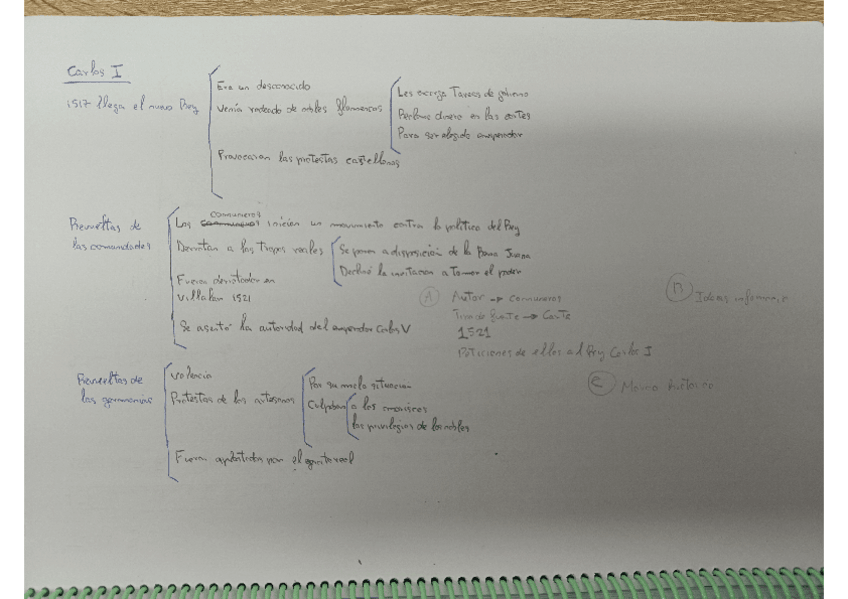 Carlos I
1517 llega el nuevo Rey
Era un desconocido
Venía rodeado de nobles flamencos
Les encarga Tareas de gobierno
dinero en las cortes
Para ser elegido emperador
Provocaron las protestas castellanas
Revueltas de
las comunidades
comuneros
Los inician un movimiento contra la política del Rey
Derrotan a las Tropas reales
Se ponen a disposición de la Juana
Declinó la invitación a Tomar el poder
Fueron derrotados en
Villalar 1521
Se asentó la autoridad del emperador Carlos V
A Autor → comuneros
Tipo de fuente → Carta
1521
Peticiones de ellos al Rey Carlos I
B Ideas
Revueltas de
las germanías
Valencia
Protestas de los artesanos
Por su mala situación
Culpaban a los moriscos
los privilegios de los nobles
Fueron aplastados por el ejército real
C histórico